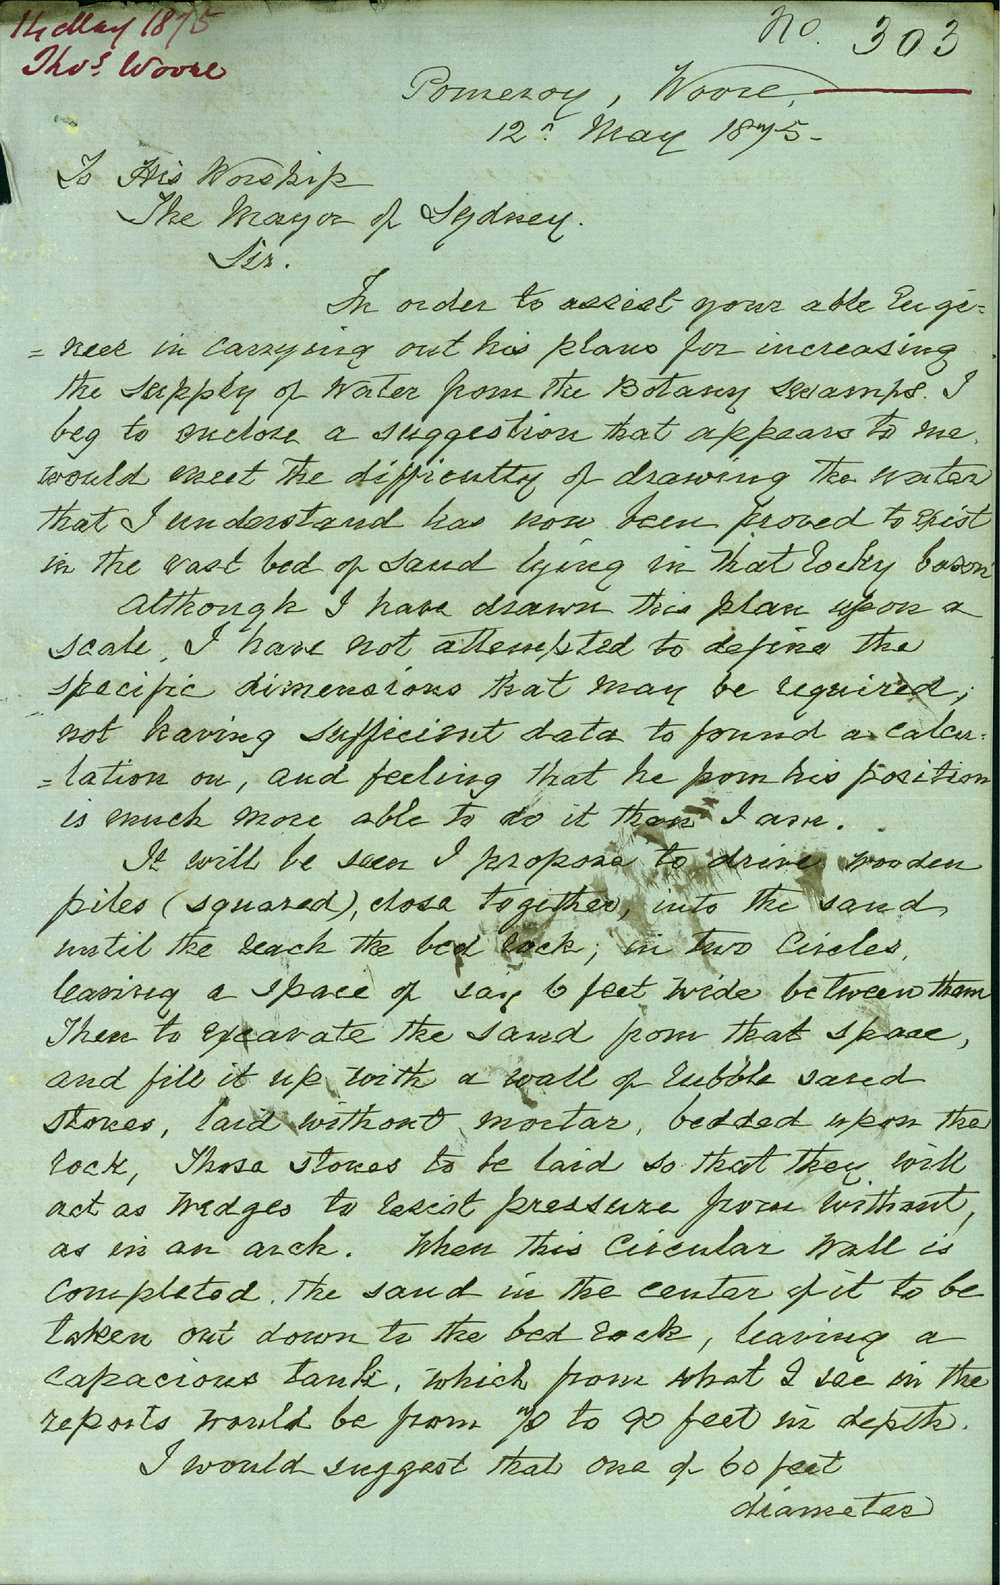 14 May 1875
Thos. Woore
No. 303
Pomeroy, Woore,
12th May 1875-
To His Worship
The Mayor of Sydney.
Sir.
In order to assist your able Engi=
=neer in carrying out his plans for increasing
the supply of Water from the Botany Swamps. I
beg to enclose a suggestion that appears to me
would meet the difficulty of drawing the water
that I understand has now been proved to exist
in the vast bed of sand lying in that rocky bason
Although I have drawn this plan upon a
scale, I have not attempted to define the
specific dimensions that may be required;
not having sufficient data to found a calcu=
=lation on, and feeling that he from his position
is much more able to do it than I am.
It will be seen I propose to drive wooden
piles (squared), close together, into the sand,
until the reach the bed rock; in two Circles,
leaving a space of say 6 feet wide between them
Then to excavate the sand from that space,
and fill it up with a wall of rubble sand
stones, laid without mortar, bedded upon the
rock, Those stones to be laid so that they will
act as Wedges to resist pressure from without,
as in an arch. When this Circular Wall is
Completed, the sand in the center of it to be
taken out down to the bed rock, leaving a
capacious tank, which from what I see in the
reports would be from 70 to 90 feet in depth.
I would suggest that one of 60 feet
diameter